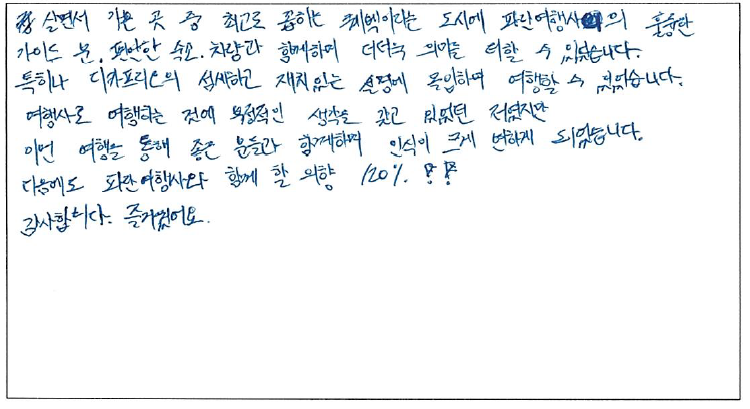 살면서 가본 곳 중 최고로 꼽히는 퀘벡이라는 도시에 파란여행사의 훌륭한
가이드 분, 편안한 숙소, 차량과 함께하며 더더욱 의미를 더할 수 있었습니다.
특히나 디카프리오의 섬세하고 재치있는 설명에 몰입하며 여행할 수 있었습니다.
여행사로 여행하는 것에 부정적인 생각을 갖고 있었던 저였지만
이번 여행을 통해 좋은 분들과 함께하며 인식이 크게 변하게 되었습니다.
다음에도 파란여행사와 함께 할 의향 120%!!
감사합니다. 즐거웠어요.